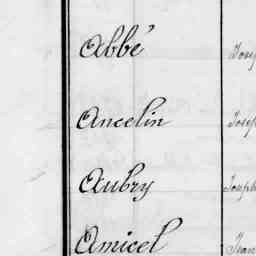 Abbé
Ancelin
Aubry Joseph
Amicel